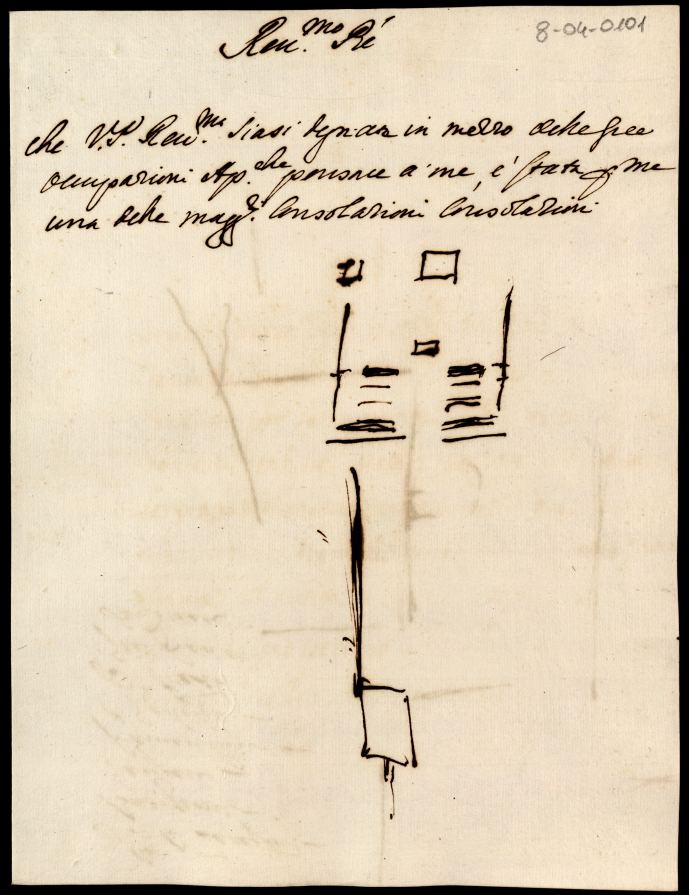 8-04-0101
Reu.mo Pré
che V.P. Reu.ma siasi degnata in mezzo delle sue
occupazioni Ap.che pensare a me, è stata p me
una delle magg.ri Consolazioni Consolazioni